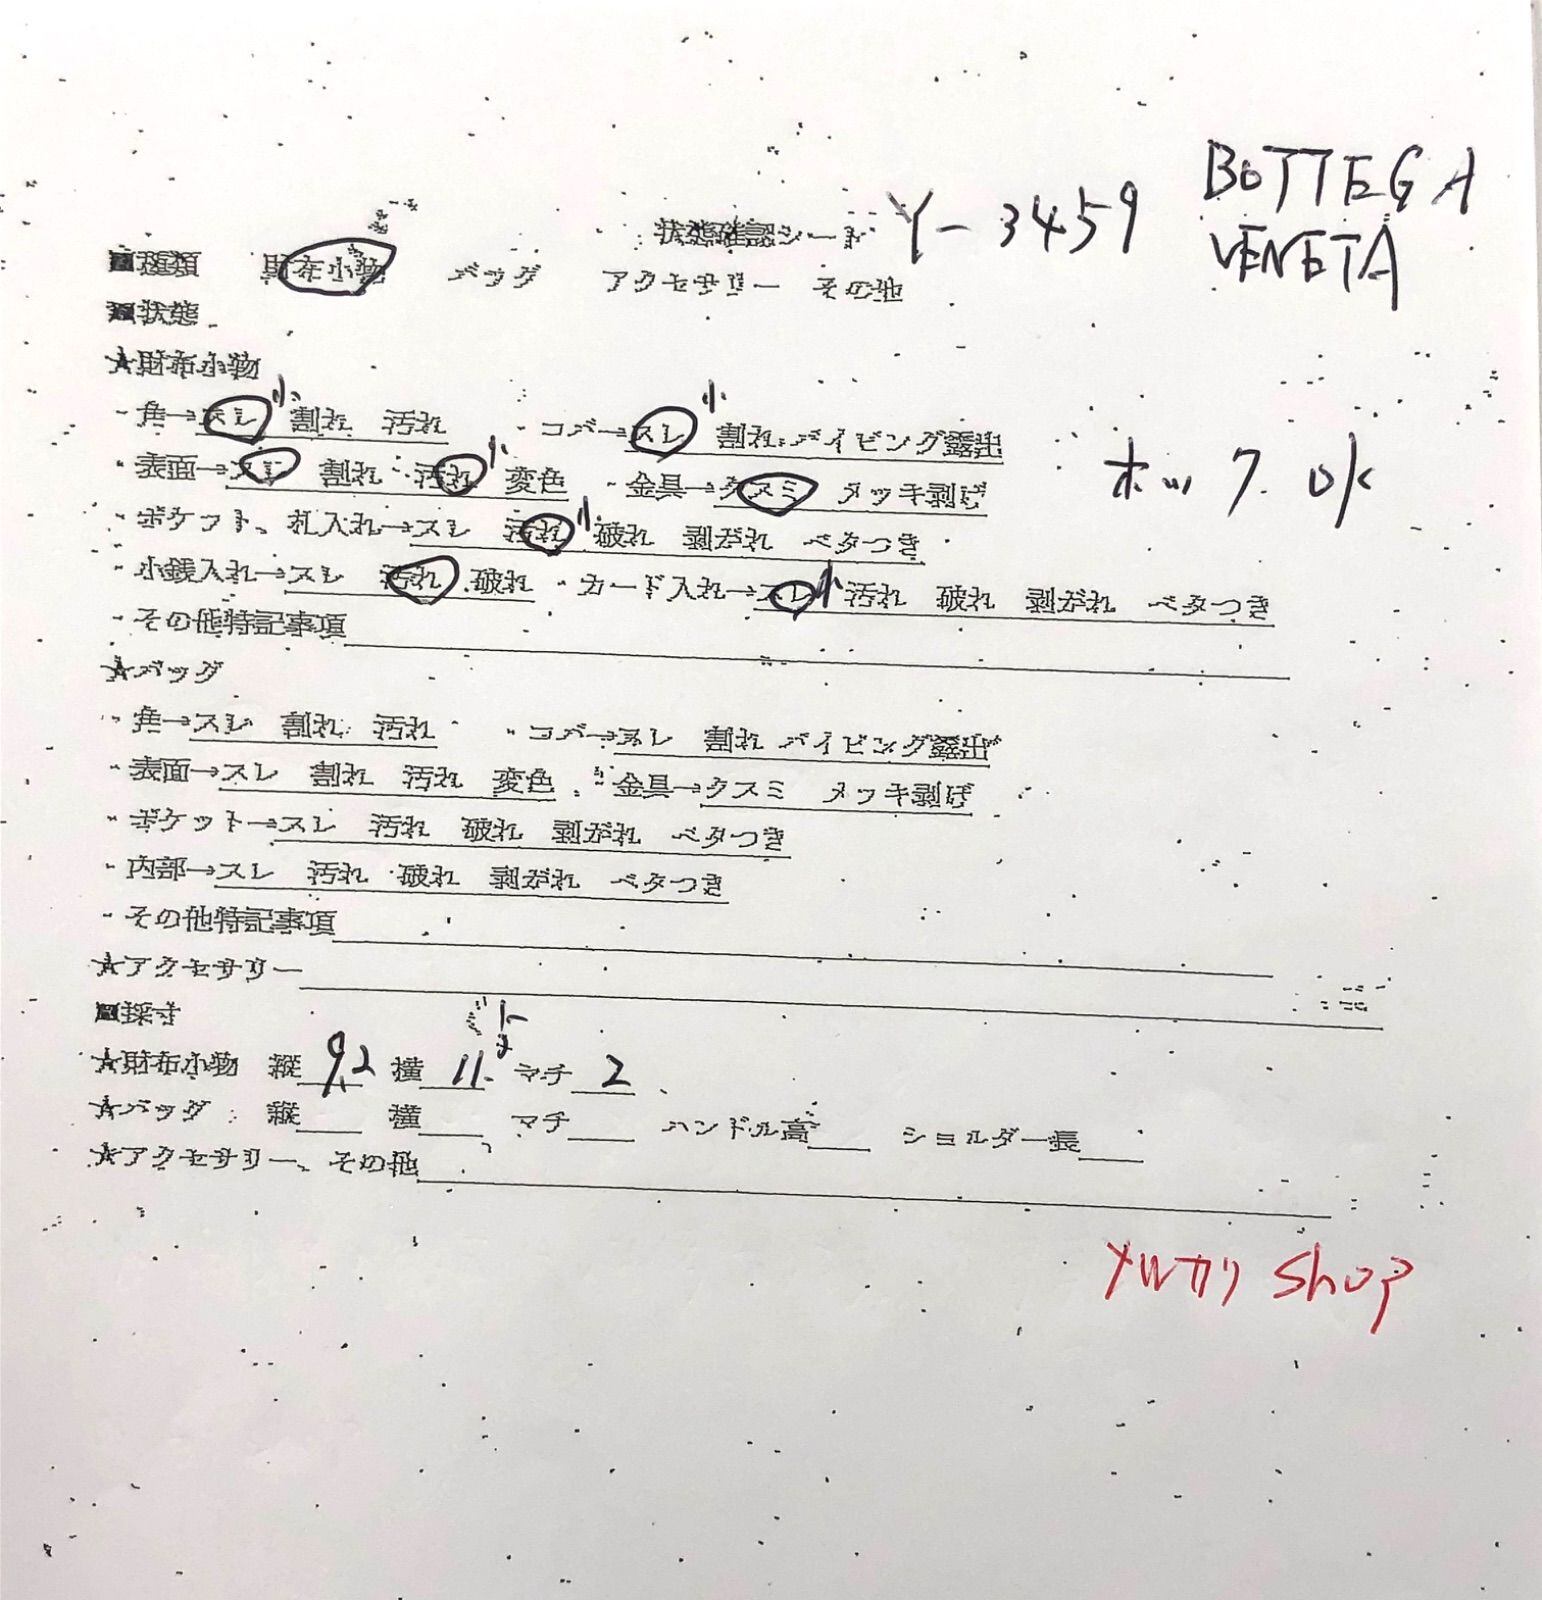 状態確認シート Y-3459 BOTTEGA
VENETA
■種類 財布小物 バッグ アクセサリー その他
■状態
★財布小物
・角→スレ小 割れ 汚れ ・コバ→スレ小 割れ パイピング露出
・表面→スレ 割れ 汚れ小 変色 ・金具→クスミ メッキ剥げ
ホック OK
・ポケット、札入れ→スレ 汚れ小 破れ 剥がれ ベタつき
・小銭入れ→スレ 汚れ 破れ ・カード入れ→スレ小 汚れ 破れ 剥がれ ベタつき
・その他特記事項
★バッグ
・角→スレ 割れ 汚れ ・コバ→スレ 割れ パイピング露出
・表面→スレ 割れ 汚れ 変色 ・金具→クスミ メッキ剥げ
・ポケット→スレ 汚れ 破れ 剥がれ ベタつき
・内部→スレ 汚れ 破れ 剥がれ ベタつき
・その他特記事項
★アクセサリー
■採寸
★財布小物 縦 9.2 横 11. マチ 2
★バッグ 縦 横 マチ ハンドル高 ショルダー長
★アクセサリー、その他
メルカリ Shop